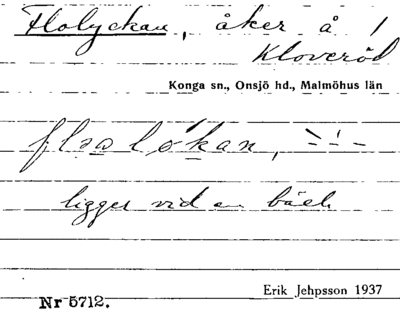 Flolyckan, åker å 1
Kloveröd
Konga sn., Onsjö hd., Malmöhus län
ligger vid en bäck
Erik Jehpsson 1937
Nr 5712.